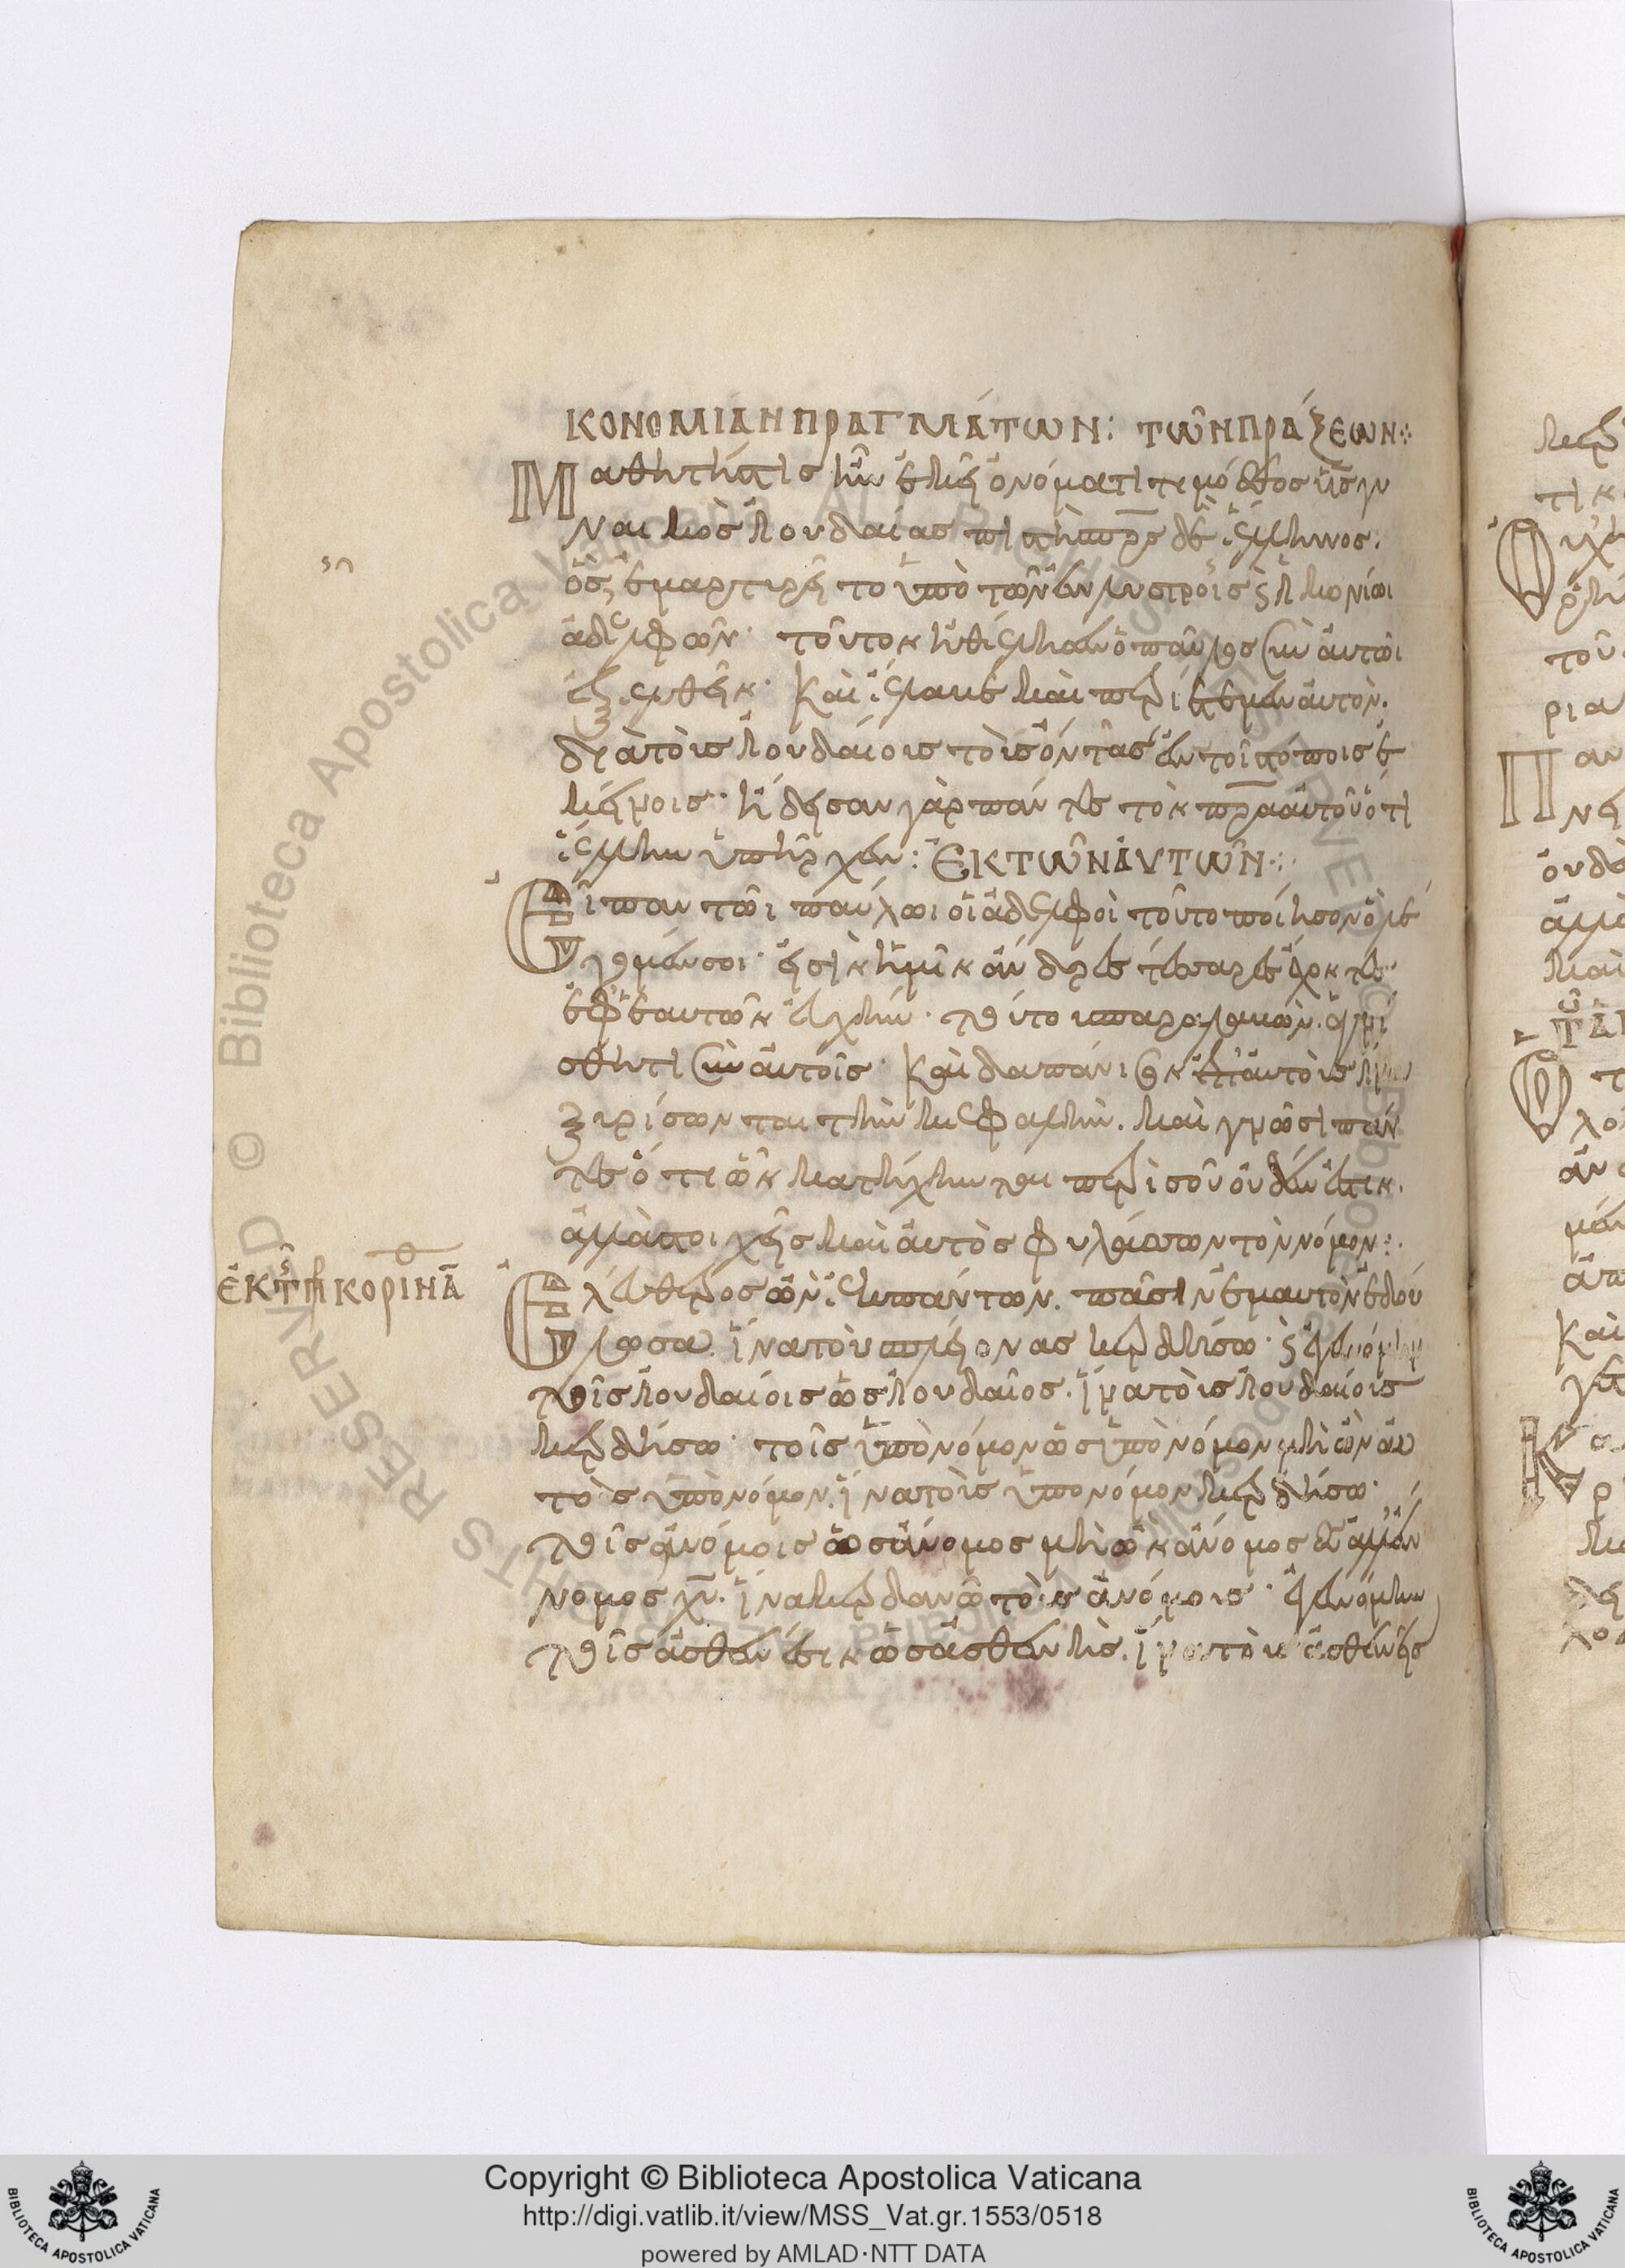 ΚΟΝΟΜΙΑΝ ΠΡΑΓΜΑΤΩΝ: ΤῶΝ ΠΡΑΞΕΩΝ
Μαθητήστις ἦν ἐκεῖ ὀνόματι τιμόθεος υἱὸς γυ
ναικὸς ἰουδαίας πιστῆς πρς δὲ ἕλληνος.
ὃς ἐμαρτυρεῖτο ὑπὸ τῶν ἐν λύστροις ϗ ἰκονίωι
ἀδελφῶν· τοῦτον ἠθέλησεν ὁ παῦλος σὺν αὐτῶι
ἐξελθεῖν· Καὶ ἔλαβε καὶ περιέτεμεν αὐτὸν.
διὰ τοὺς ἰουδαίους τοὺς ὄντας ἐν τοῖς τόποις ἐ
κείνοις· ἤδεισαν γὰρ πάντες τὸν πρα αὐτοῦ ὅτι
ἕλλην ὑπῆρχεν: ἘΚ ΤῶΝ ΑΥΤῶΝ
Εἶπαν τῶι παύλωι οἱ ἀδελφοὶ τοῦτο ποίησον ὃ λέ
γομέν σοι· εἰσὶν ἡμῖν ἄνδρες τέσσαρες ἔχοντες
ἐφ' ἑαυτῶν εὐχήν. τούτους παραλαβὼν ἁγνί
σθητι σὺν αὐτοῖς· Καὶ δαπάνησον ἐπ' αὐτοὺς ἵνα
ξυρήσωνται τὴν κεφαλήν. καὶ γνῶσι πάν
τες ὅτι ὧν κατήχηνται περὶ σοῦ οὐδέν ἐστιν.
ἀλλὰ στοιχεῖς καὶ αὐτὸς φυλάσσων τὸν νόμον:
ἐκ τῆς πρ κοριν α
Ἐλεύθερος ὢν ἐκ πάντων. πᾶσιν ἐμαυτὸν ἐδού
λωσα. ἵνα τοὺς πλείονας κερδήσω· ϗ ἐγενόμην
τοῖς ἰουδαίοις ὡς ἰουδαῖος. ἵνα τοὺς ἰουδαίους
κερδήσω· τοῖς ὑπὸ νόμον ὡς ὑπὸ νόμον μὴ ὢν αὐ
τὸς ὑπὸ νόμον. ἵνα τοὺς ὑπὸ νόμον κερδήσω·
τοῖς ἀνόμοις ὡς ἄνομος μὴ ὢν ἄνομος θυ ἀλλ' ἔν
νομος χυ. ἵνα κερδανῶ τοὺς ἀνόμους· ἐγενόμην
τοῖς ἀσθενέσιν ὡς ἀσθενής. ἵνα τοὺς ἀσθενεῖς
Copyright © Biblioteca Apostolica Vaticana
http://digi.vatlib.it/view/MSS_Vat.gr.1553/0518
powered by AMLAD·NTT DATA